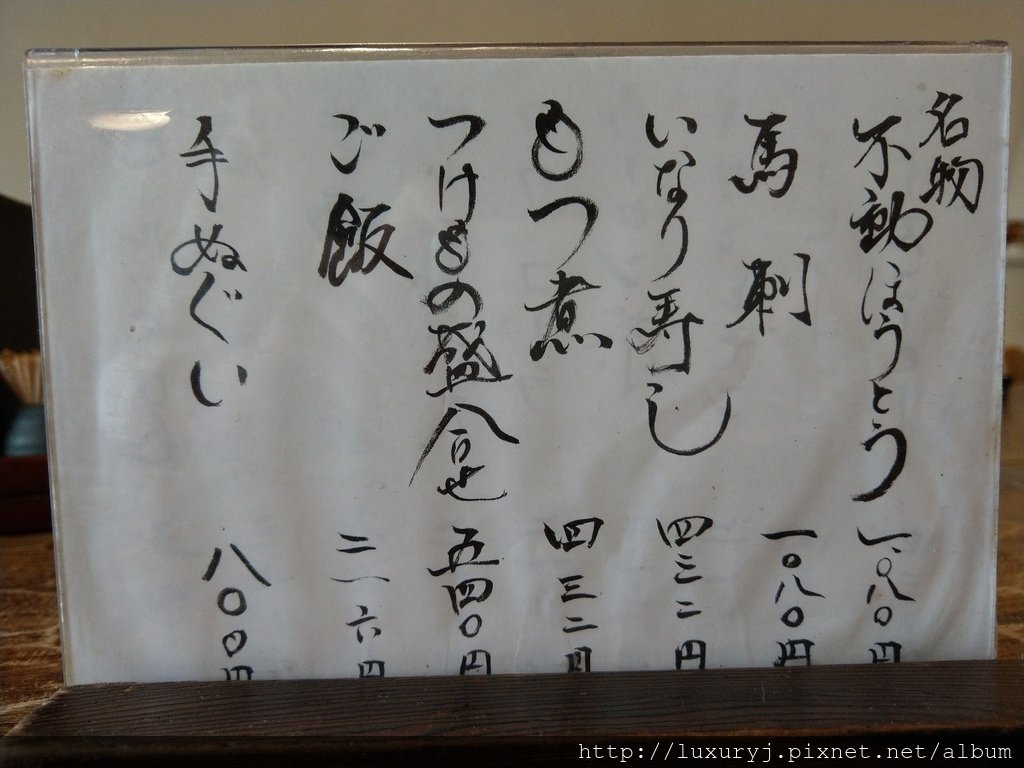 名物
不動ほうとう 一、〇八〇円
馬刺 一〇八〇円
いなり寿し 四三二円
もつ煮 四三二円
つけもの盛合せ 五四〇円
ご飯 二一六円
手ぬぐい 八〇〇円
http://luxuryj.pixnet.net/album